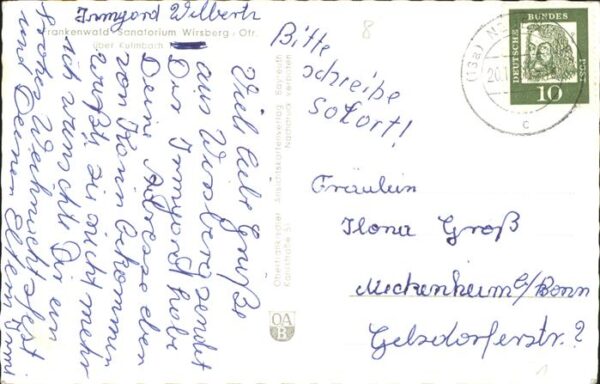 Irmgard Wilbertz
Frankenwald-Sanatorium Wirsberg/Ofr.
über Kulmbach
Viel liebe Grüße
aus Wirsberg sendet
Dir Irmgard habe
Deine Adresse eben
von Karin bekommen
wußte sie nicht mehr
ich wünsche Dir ein
frohes Weihnachtsfest
und Deinen Eltern
Bitte
schreibe
sofort!
Oberfränkischer Ansichtskartenverlag Bayreuth
Nachdruck verboten
OA
B
DEUTSCHE BUNDES POST
10
(13a)
20.
c
Fräulein
Ilona Groß
Meckenheim b/Bonn
Gelsdorferstr.?